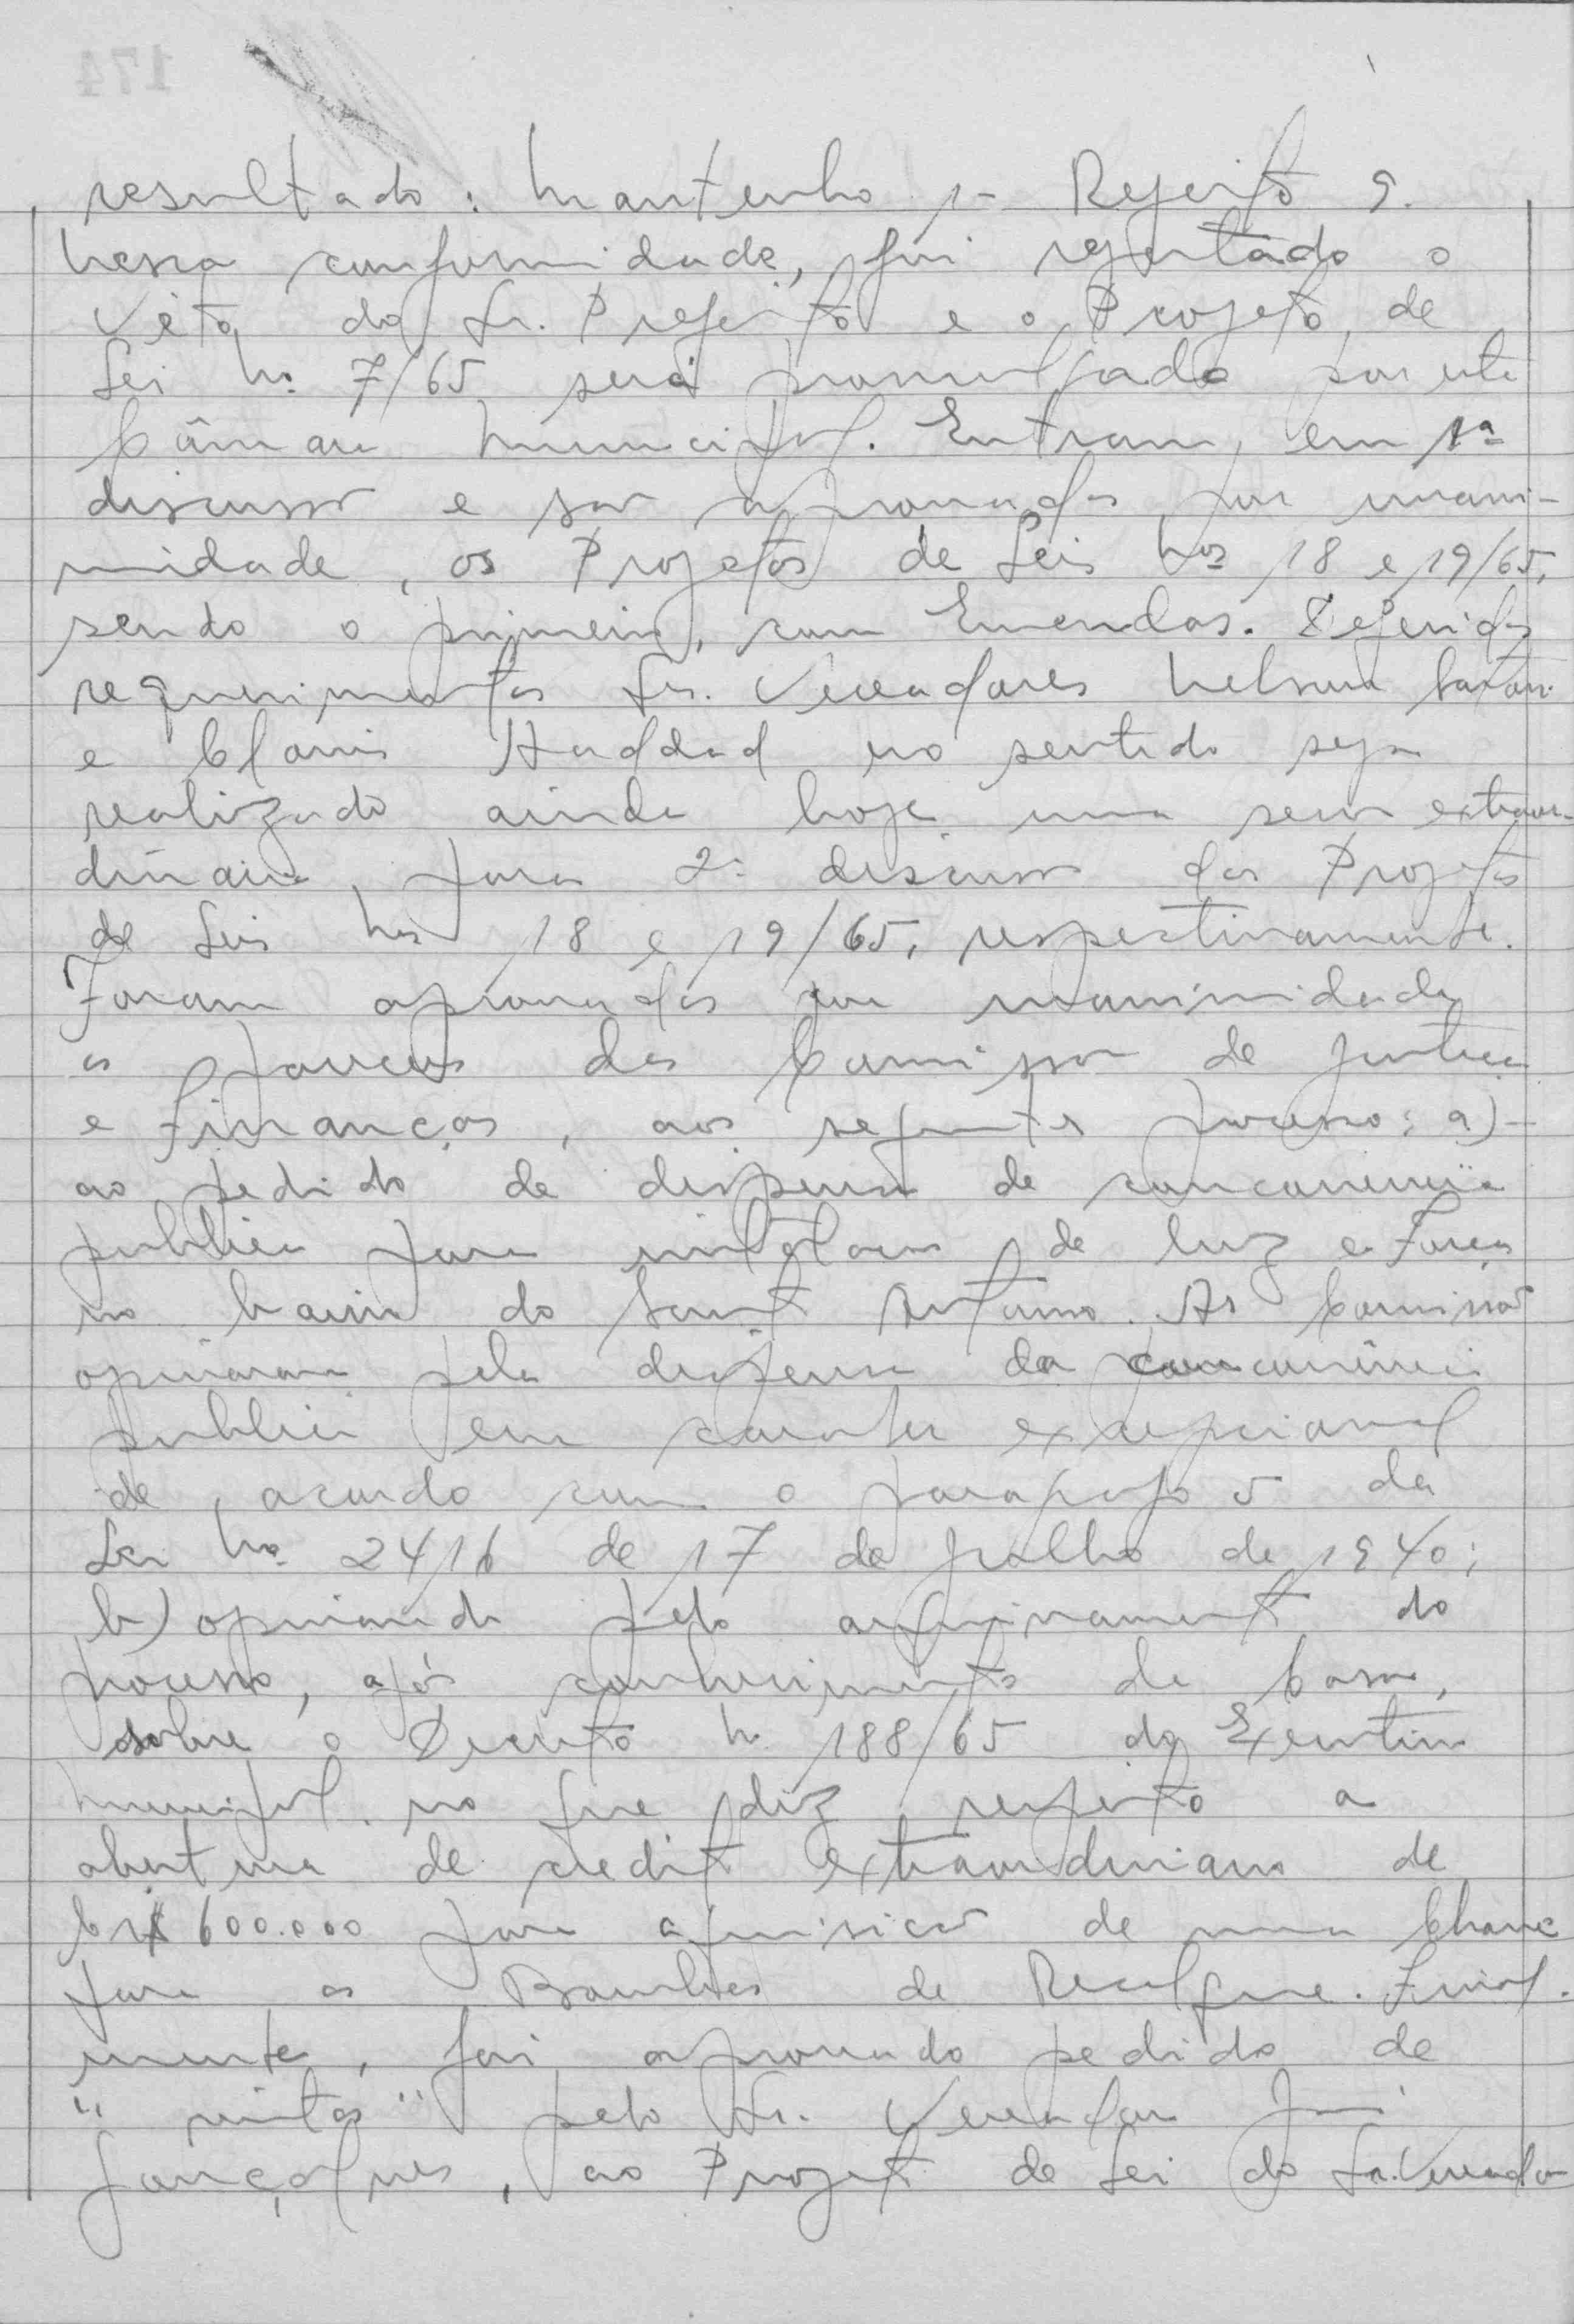 resultado: Mantenho 1 - Rejeito 9.
Nessa conformidade, foi rejeitado o
Véto do Sr. Prefeito e o Projeto de
Lei Nº 7/65 será promulgado por esta
Câmara Municipal. Entram, em 1ª
discussão e são aprovados por unani-
midade, os Projetos de Leis Nºs 18 e 19/65,
sendo o primeiro, com Emendas. Deferidos
requerimentos Srs. Vereadores Nelson
e Clovis Haddad no sentido seja
realizado ainda hoje uma sessão extraor-
dinária, para 2ª discussão dos Projetos
de Leis Nºs 18 e 19/65, respectivamente.
Foram aprovados por unanimidade
os pareceres das Comissão de Justiça
e Finanças, aos seguintes processos: a)-
ao pedido de dispensa de concorrência
publica para instalação de luz e Força
no bairro do Santo Antonio. As Comissões
opinaram pela dispensa da concorrência
publica em carater excepcional
de acordo com o paragrafo 5 da
Lei Nº 2416 de 17 de julho de 1940;
b) opinando pelo arquivamento do
processo, após conhecimento da Casa,
sobre o Decreto N. 188/65 do Executivo
Municipal no que diz respeito a
abertura de credito extraordinario de
Cr$ 600.000 para aquisição de uma Chave
para as Bombas de Recalque. Final-
mente, foi aprovado pedido de
"vistas" pelo Sr. Vereador José
Gonçalves, ao Projeto de Lei do Sr. Vereador